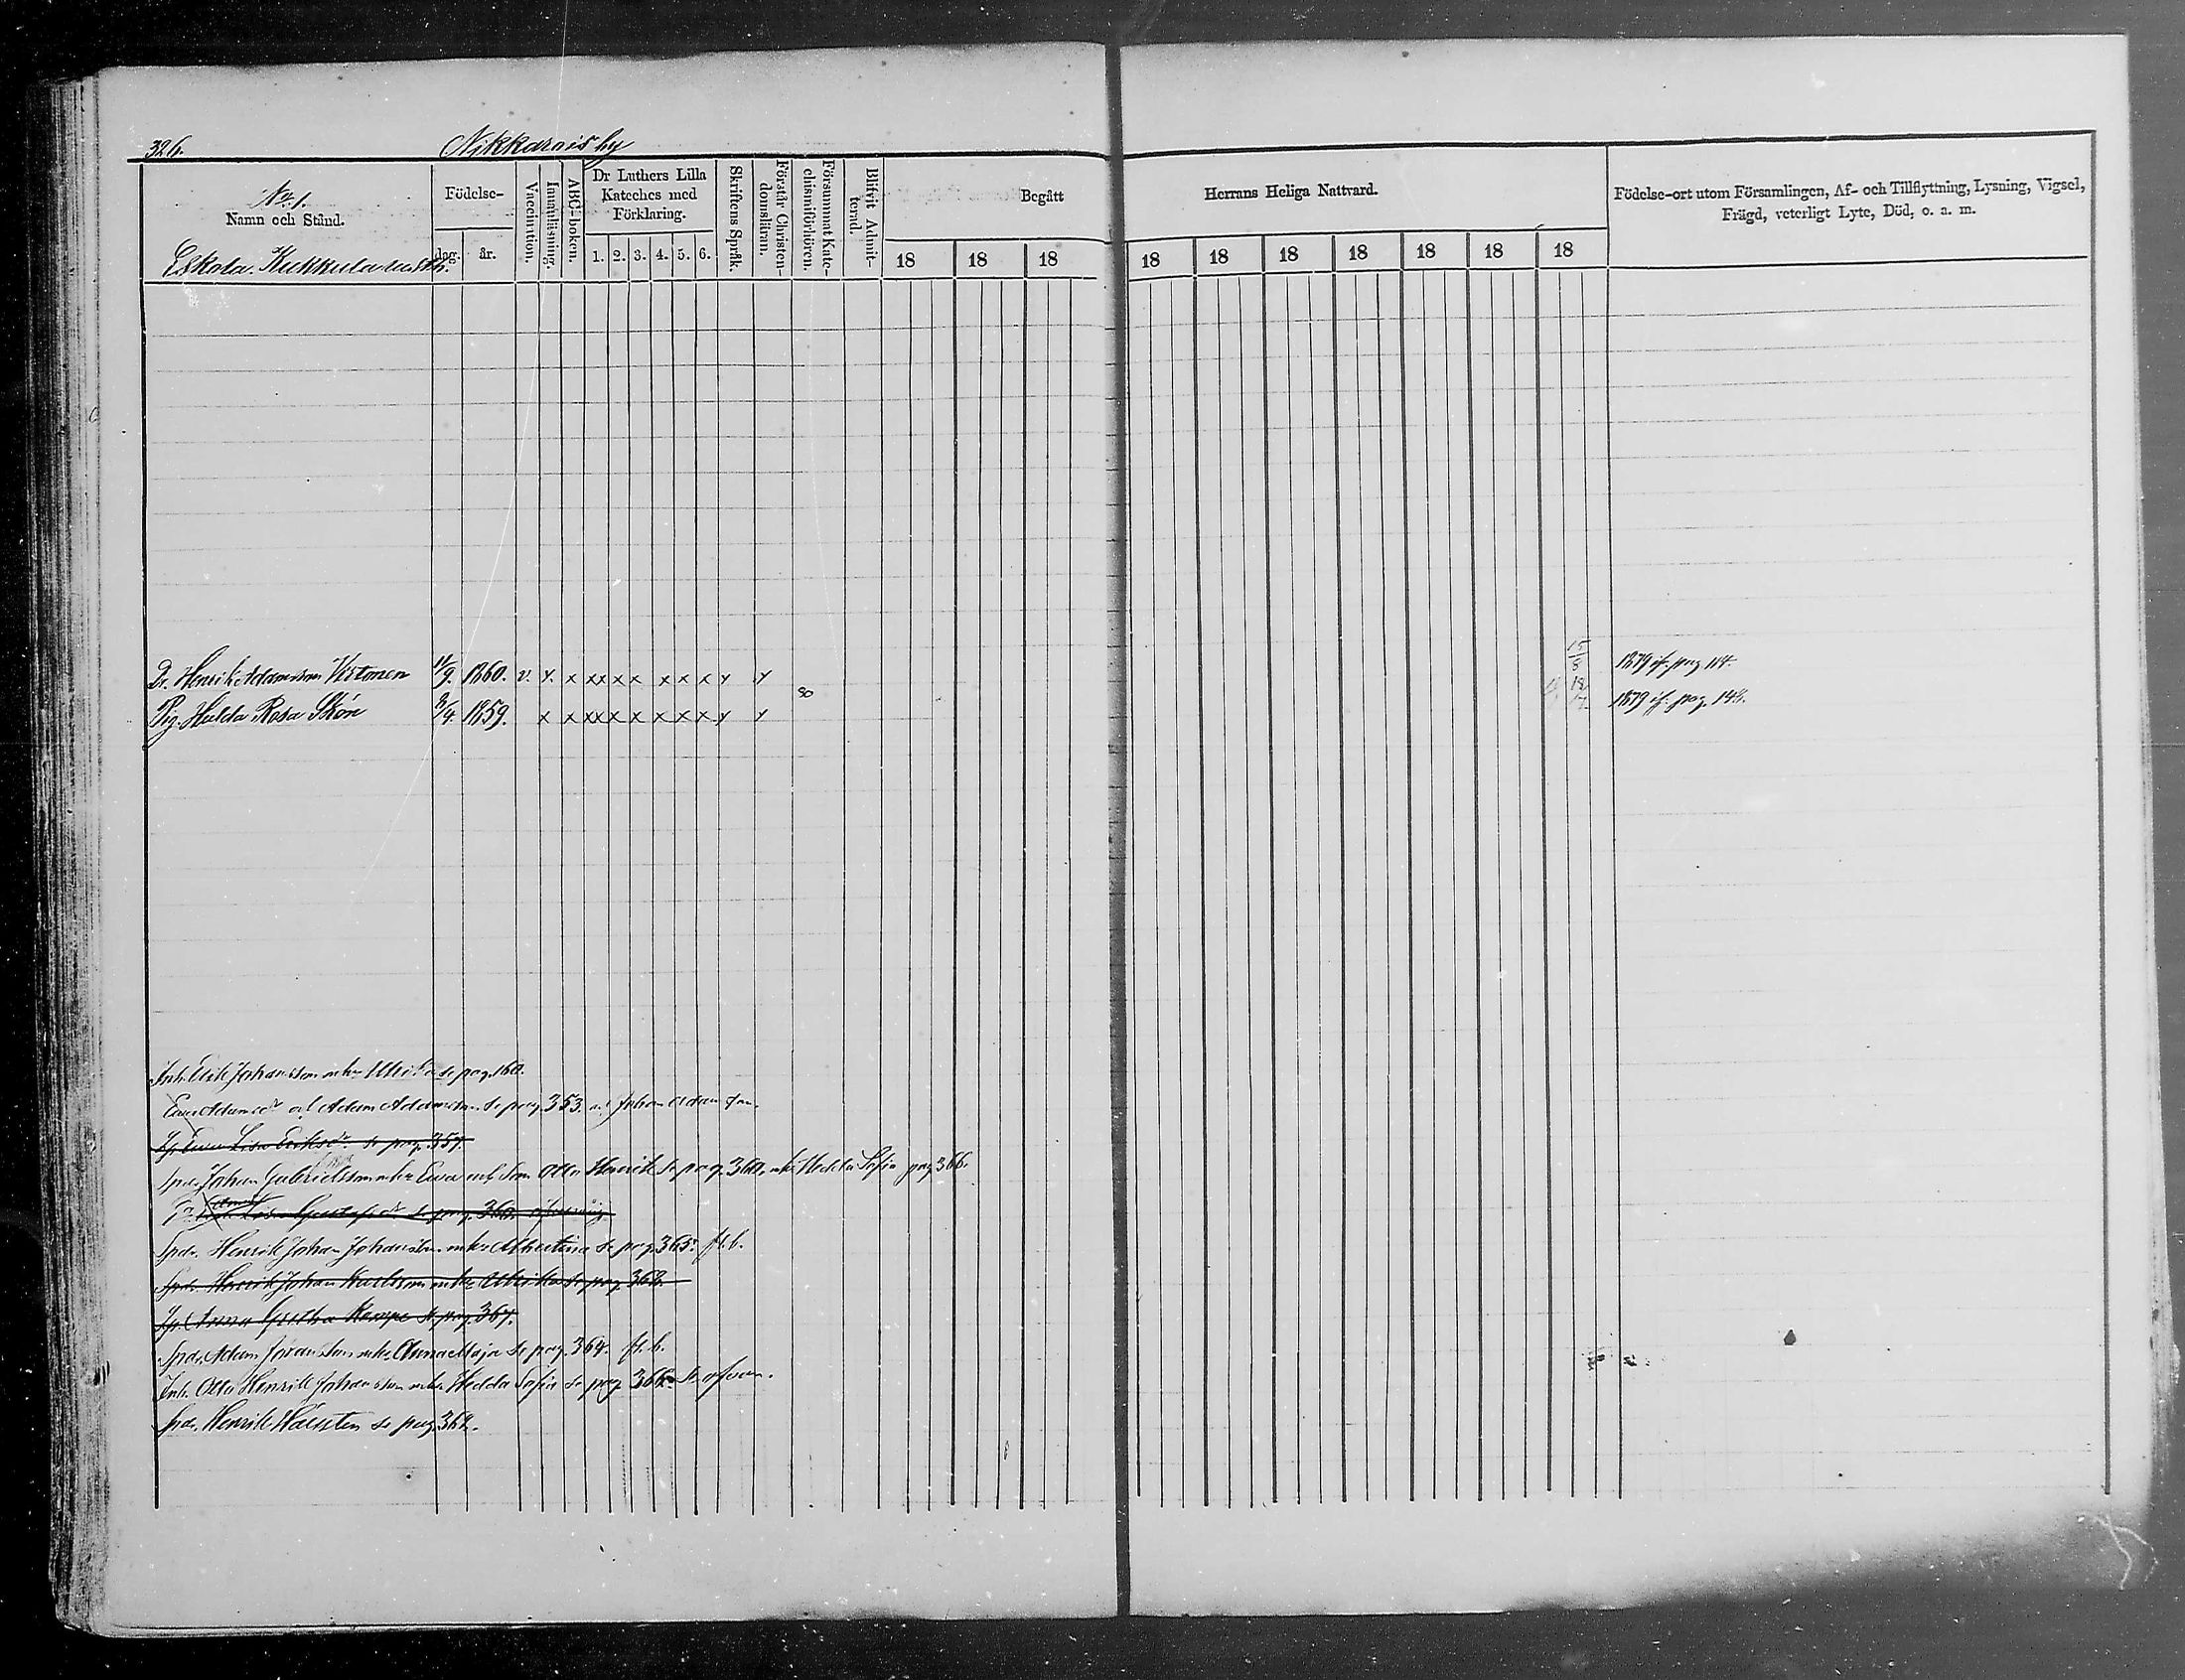 326.
Nikkarais by
No. 1.
Namn och Stånd.
Eskola. Kukkula rusth.
Födelse-
dag. år.
Vaccination.
Innanläsning.
ABC-boken.
Dr Luthers Lilla
Kateches med
Förklaring.
1. 2. 3. 4. 5. 6.
Skriftens Språk.
Förstår Christen-
domslitran.
Försummat Kate-
chismiförhören.
Blifvit Admit-
terad.
Begått
Herrans Heliga Nattvard.
18 18 18 18 18 18 18 18 18 18
Födelse-ort utom Församlingen, Af- och Tillflyttning, Lysning, Vigsel,
Frägd, veterligt Lyte, Död, o. a. m.
Dr. Henrik Adamsson Virtonen 11/9. 1860. v. x. x xx x x x x x y y 15/8 1879 if. pag 114.
80
Pig. Hulda Rosa Skön 8/4. 1859. x x xx x x x x x y y 1879 if. pag. 148.
Inh. Erik Johansson m. h. Ulrika se pag. 160.
Eva Adamsdr och Adam Adamsson se pag. 353. och Johan Adamsson.
Eva Lisa Eriksdr se pag. 357.
Spdr. Johan Gabrielsson m. h. Eva och Son Otto Henrik se pag. 360. m. h. Hedda Sofia pag 366.
Lisa Gustafsdr se pag. 360.
Spdr. Henrik Johan Johansson m. h. Albertina se pag. 365. fl. b.
Spdr. Henrik Johan Karlsson m. h. Ulrika se pag. 368.
Anna Greta Kempe se pag. 367.
Spdr. Adam Johansson m. h. Anna Maja se pag. 364. fl. b.
Inh. Otto Henrik Johansson m. h. Hedda Sofia se pag. 366. se ofvan.
Spdr. Henrik se pag. 364.